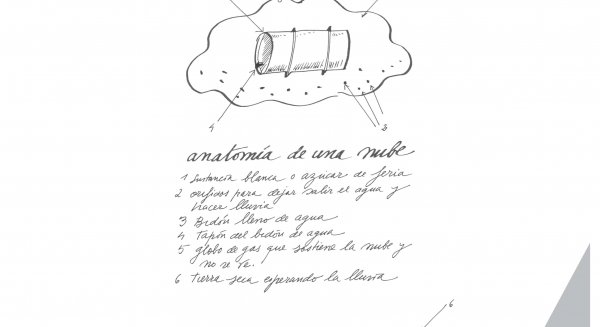 4
3
anatomía de una nube
1 Sustancia blanca o azúcar de feria
2 orificios para dejar salir el agua y
hacer lluvia
3 Bidón lleno de agua
4 Tapón del bidón de agua
5 globo de gas que sostiene la nube y
no se ve.
6 tierra seca esperando la lluvia
6